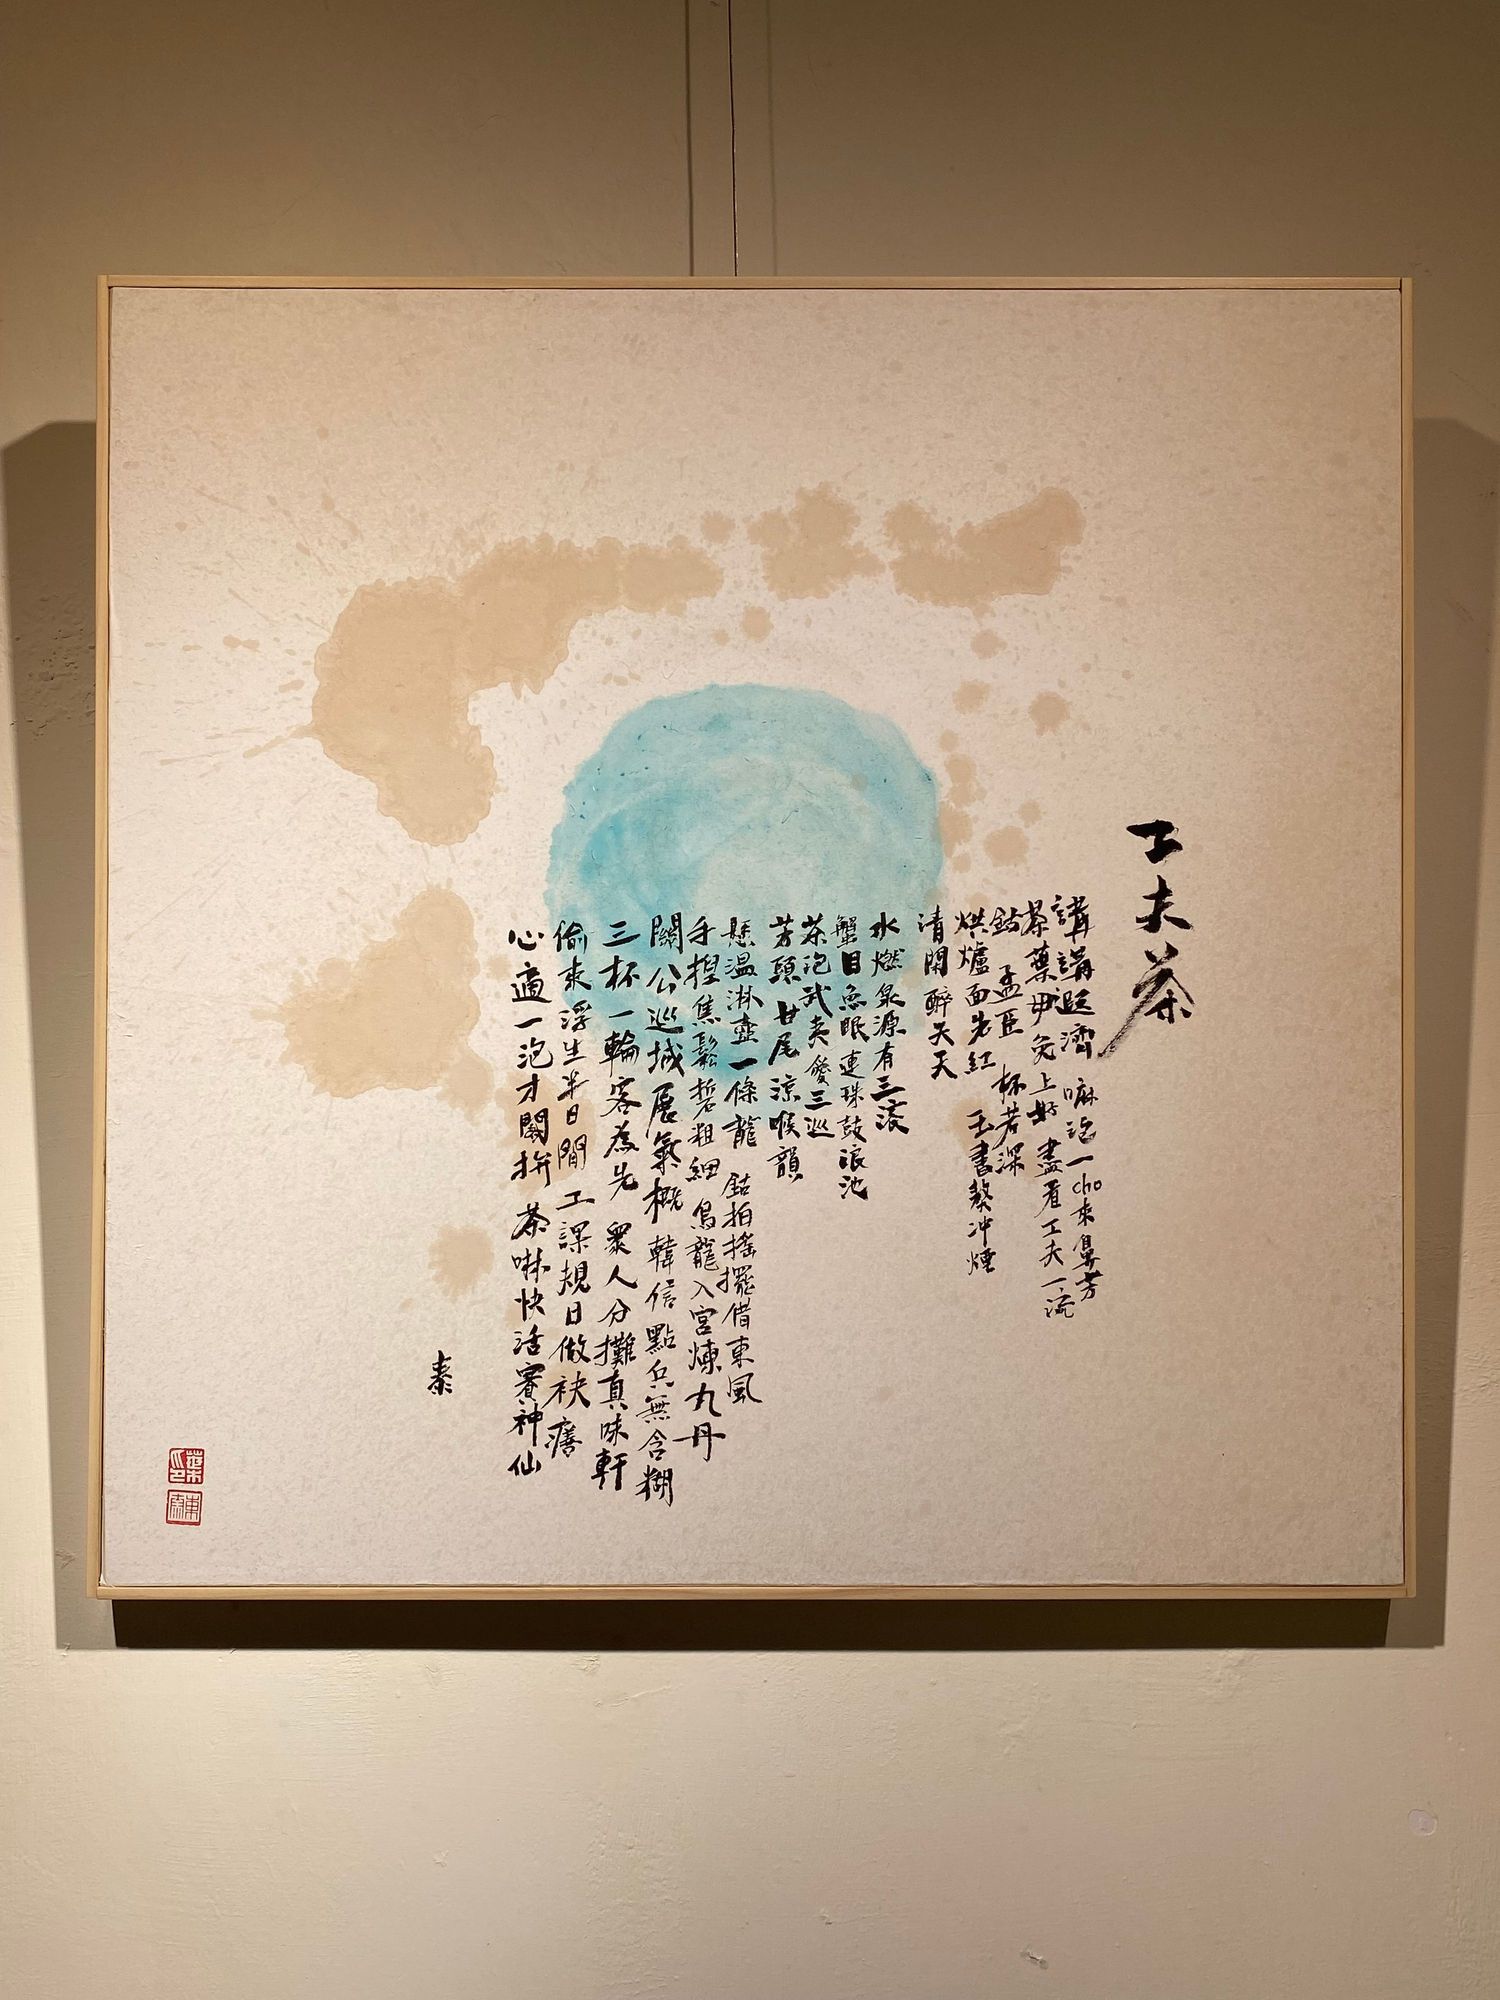 工夫茶
講講遐濟 嘛泡一cho來鼻芳
茶葉毋免上好 盡看工夫一流
鈷 孟臣 杯若深
烘爐面先紅 玉書熬冲煙
清閑醉天天
水燃泉源有三滾
蟹目魚眠連珠鼓浪池
茶泡武夷愛三巡
芳頭 甘尾 涼喉韻
懸溫淋壺一條龍 鈷拍搖擺借東風
手捏焦鬆晢粗細 烏龍入宮煉九丹
關公巡城展氣概 韓信點兵無含糊
三杯一輪客為先 眾人分攤真味軒
偷來浮生半日閒 工課規日做袂癢
心適一泡才鬪拚 茶啉快活賽神仙
秦